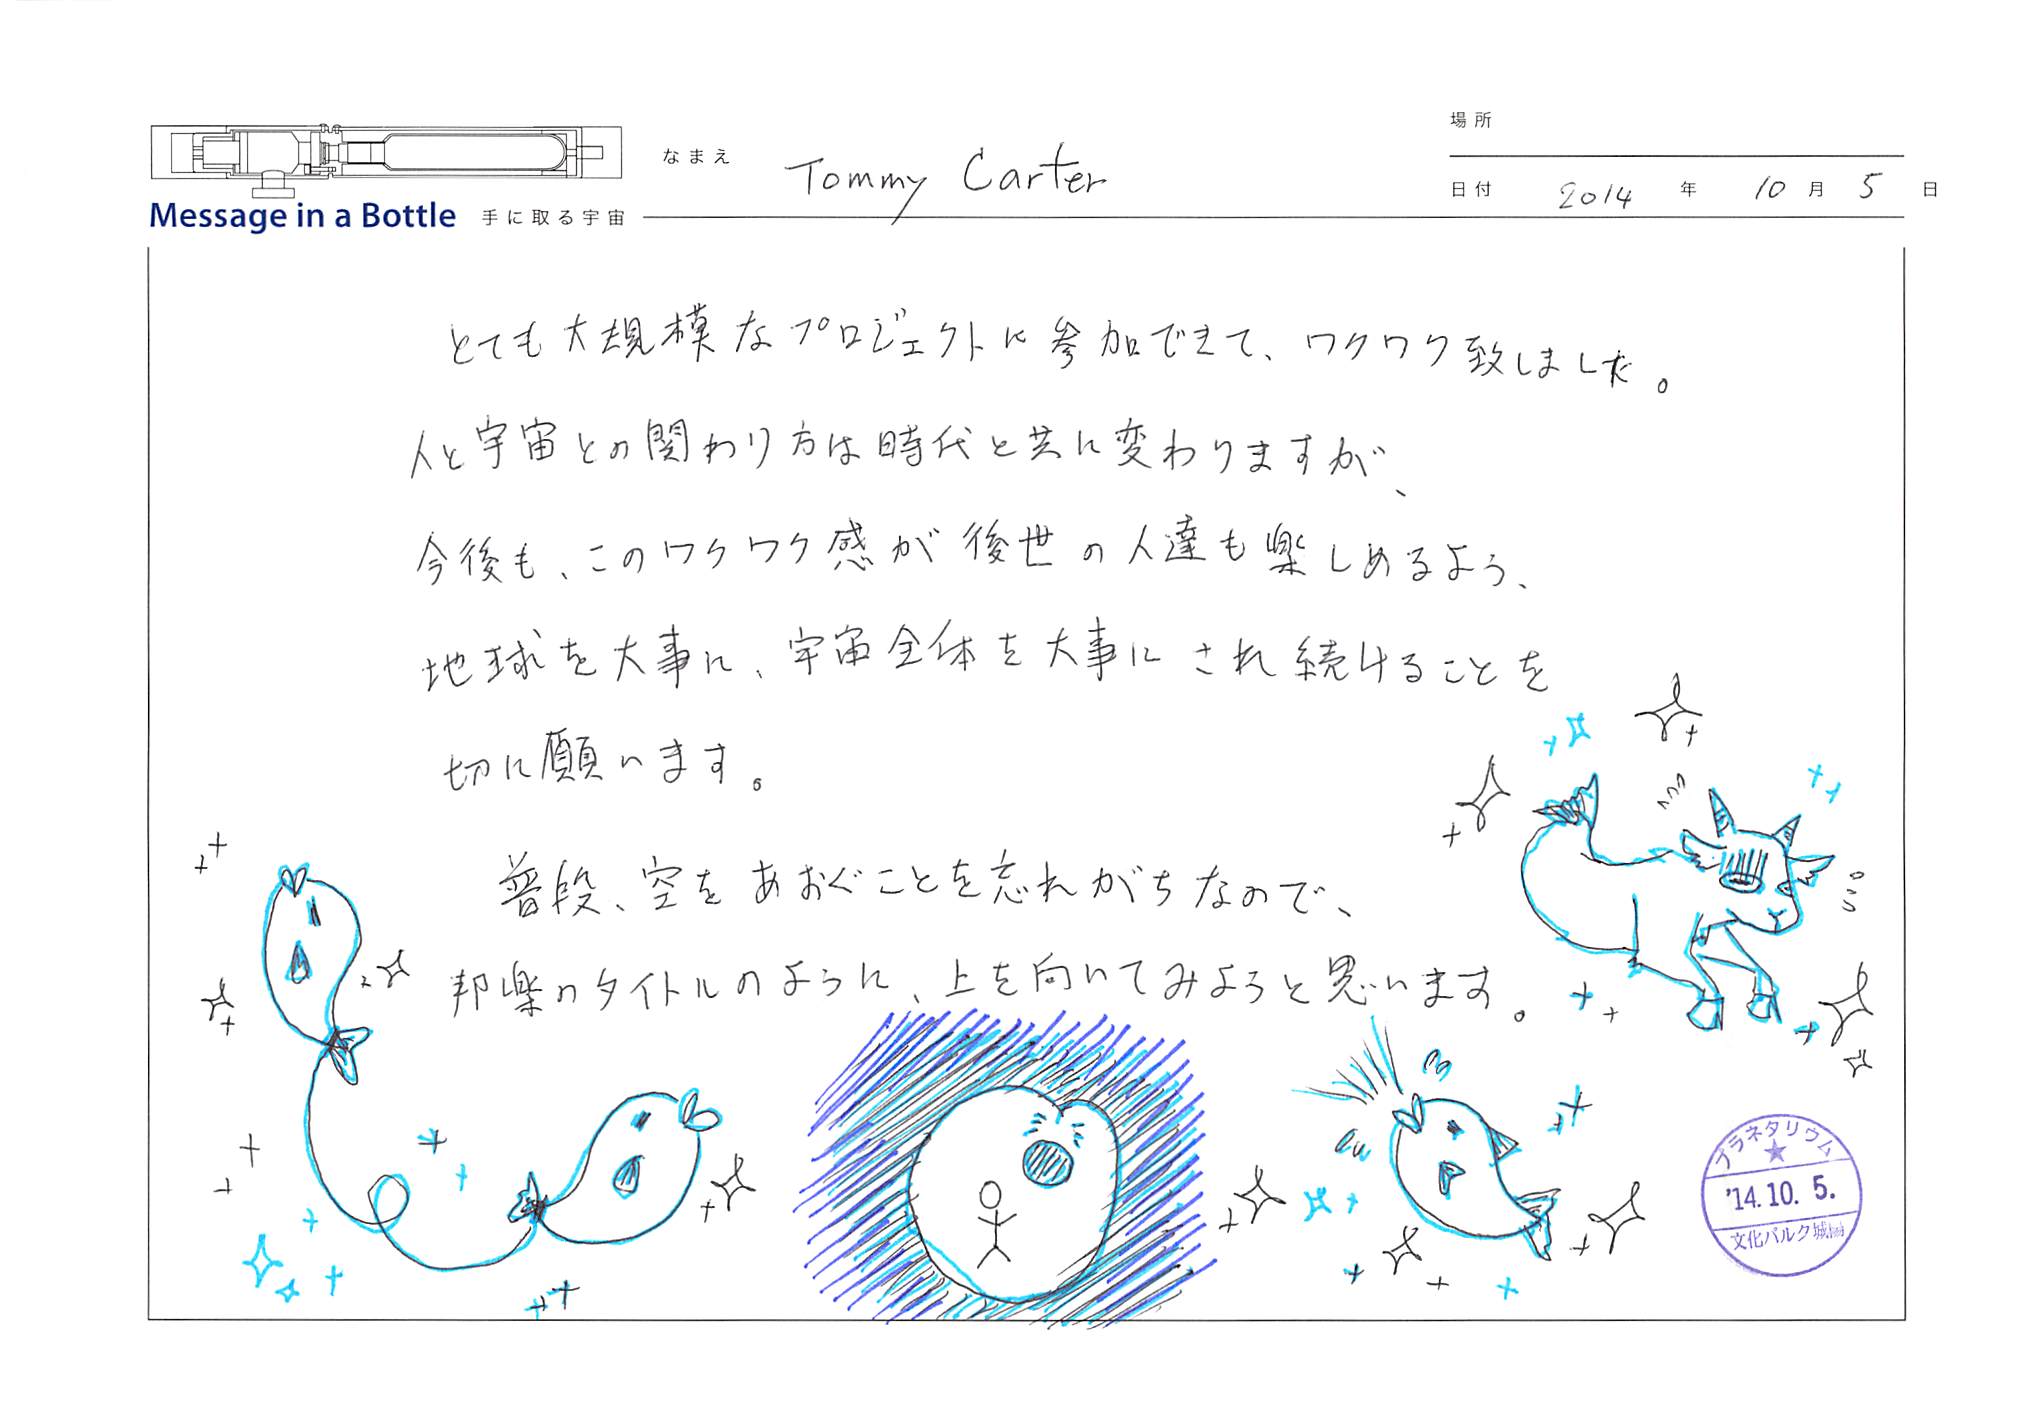 場所
なまえ Tommy Carter
日付 2014 年 10 月 5 日
Message in a Bottle 手に取る宇宙
とても大規模なプロジェクトに参加できて、ワクワク致しました。
人と宇宙との関わり方は時代と共に変わりますが、
今後も、このワクワク感が後世の人達も楽しめるよう、
地球を大事に、宇宙全体を大事にされ続けることを
切に願います。
普段、空をあおぐことを忘れがちなので、
邦楽のタイトルのように、上を向いてみようと思います。
プラネタリウム
'14.10.5.
文化パルク城